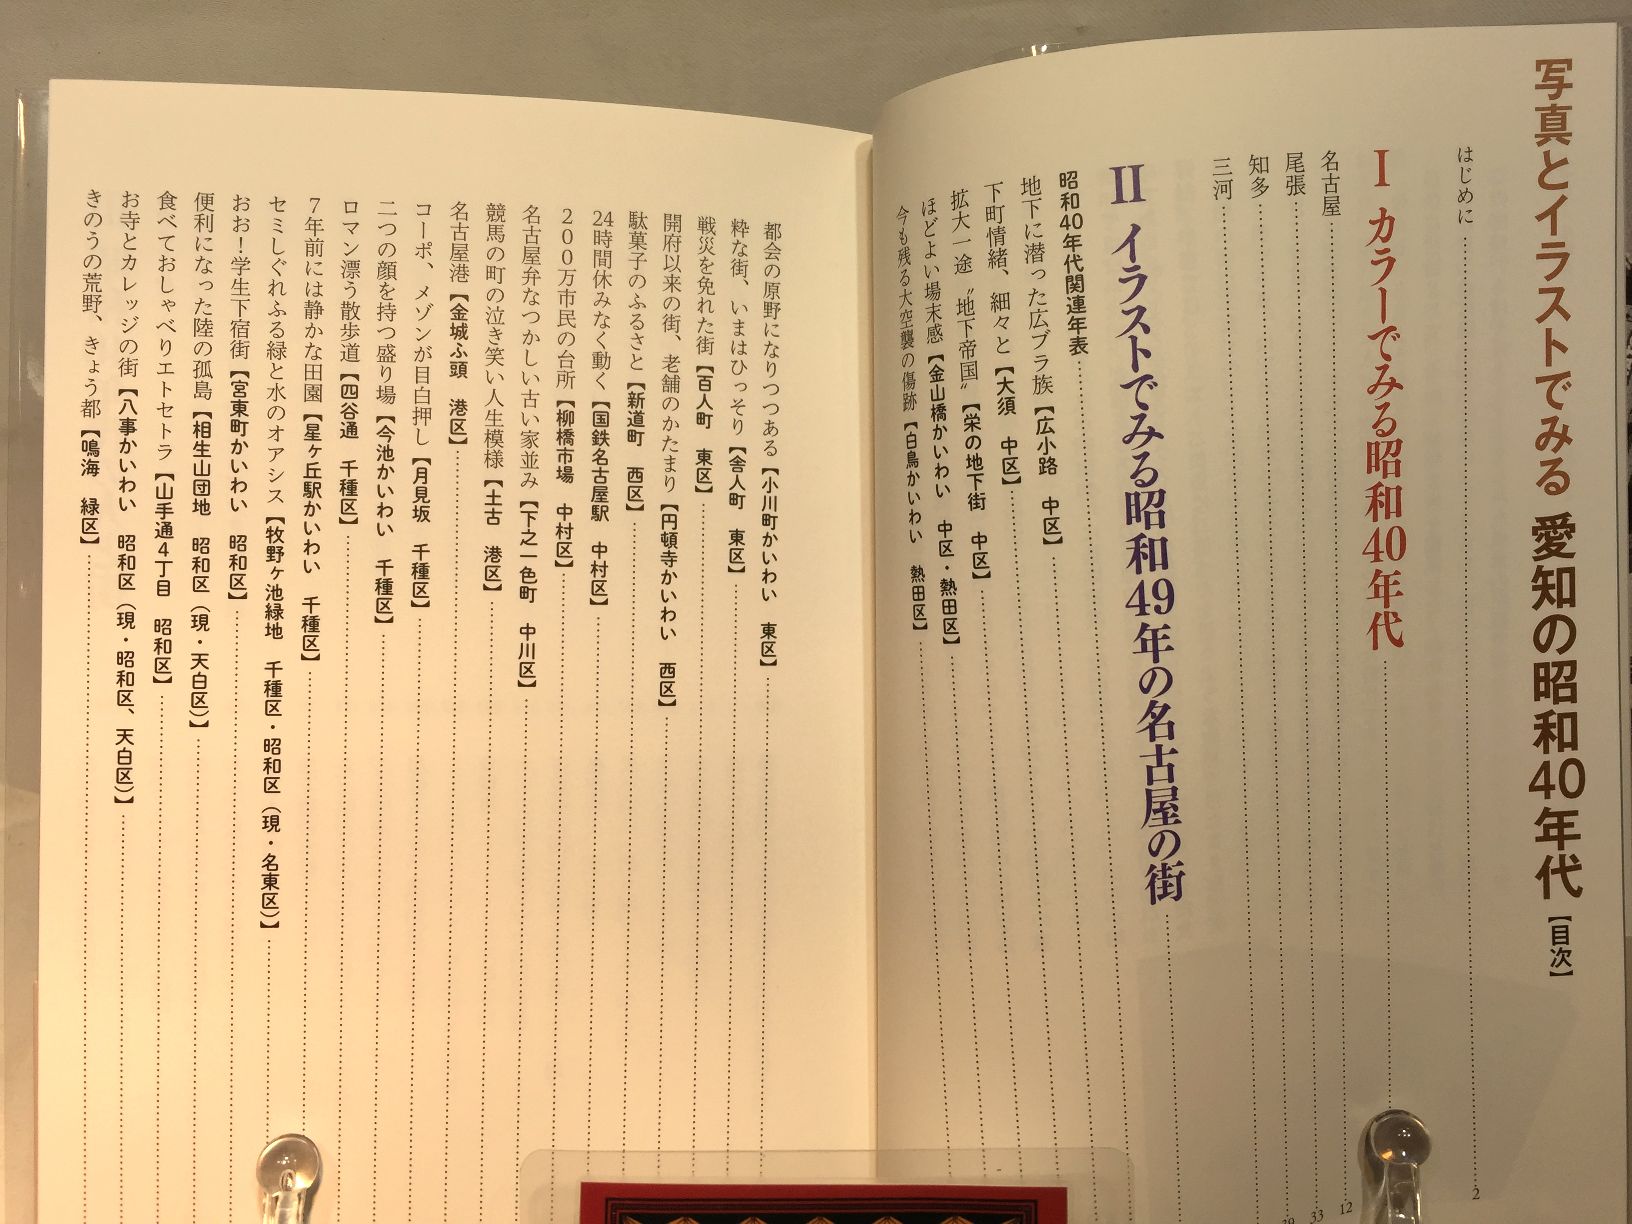 写真とイラストでみる 愛知の昭和40年代【目次】
はじめに 2
I カラーでみる昭和40年代
名古屋 12
尾張 33
知多
三河
II イラストでみる昭和49年の名古屋の街
昭和40年代関連年表
地下に潜った広ブラ族【広小路 中区】
下町情緒、細々と【大須 中区】
拡大一途〝地下帝国〟【栄の地下街 中区】
ほどよい場末感【金山橋かいわい 中区・熱田区】
今も残る大空襲の傷跡【白鳥かいわい 熱田区】
都会の原野になりつつある【小川町かいわい 東区】
粋な街、いまはひっそり【舎人町 東区】
戦災を免れた街【百人町 東区】
開府以来の街、老舗のかたまり【円頓寺かいわい 西区】
駄菓子のふるさと【新道町 西区】
24時間休みなく動く【国鉄名古屋駅 中村区】
200万市民の台所【柳橋市場 中村区】
名古屋弁なつかしい古い家並み【下之一色町 中川区】
競馬の町の泣き笑い人生模様【土古 港区】
名古屋港【金城ふ頭 港区】
コーポ、メゾンが目白押し【月見坂 千種区】
二つの顔を持つ盛り場【今池かいわい 千種区】
ロマン漂う散歩道【四谷通 千種区】
7年前には静かな田園【星ヶ丘駅かいわい 千種区】
セミしぐれふる緑と水のオアシス【牧野ヶ池緑地 千種区・昭和区（現・名東区）】
おお！学生下宿街【宮東町かいわい 昭和区】
便利になった陸の孤島【相生山団地 昭和区（現・天白区）】
食べておしゃべりエトセトラ【山手通4丁目 昭和区】
お寺とカレッジの街【八事かいわい 昭和区（現・昭和区、天白区）】
きのうの荒野、きょう都【鳴海 緑区】